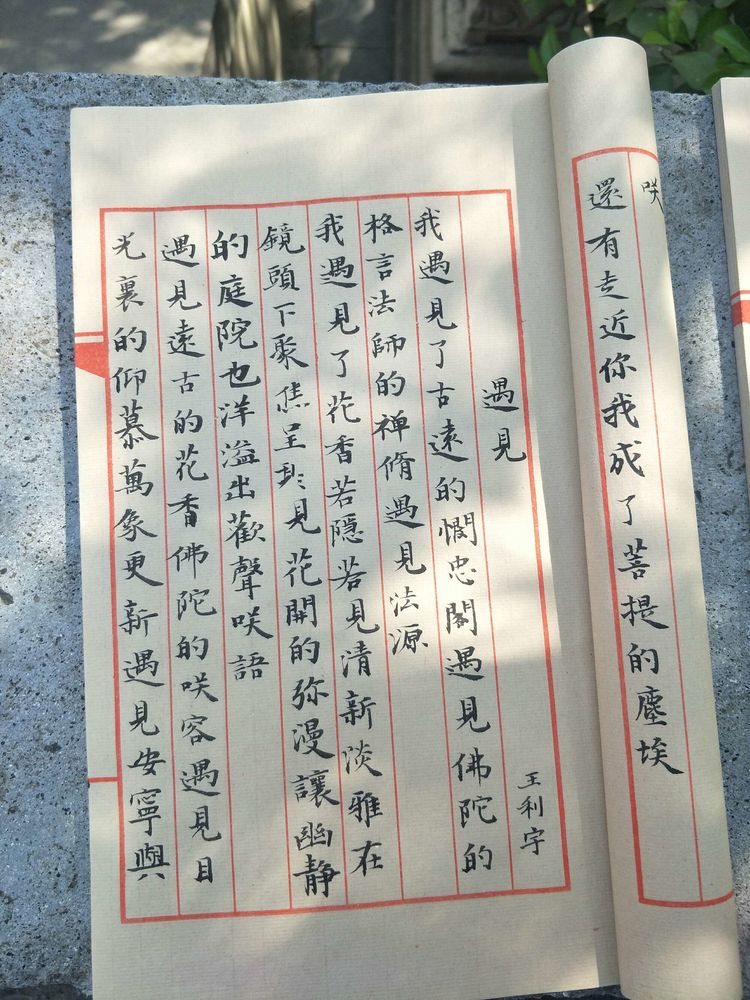 咲
還有走近你我成了菩提的塵埃
遇見
王利宇
我遇見了古遠的憫忠閣遇見佛陀的
格言法師的禅脩遇見法源
我遇見了花香若隱若見清新淡雅在
鏡頭下聚焦呈見花開的弥漫讓幽静
的庭院也洋溢出歡聲咲語
遇見遠古的花香佛陀的咲容遇見目
光裏的仰慕萬象更新遇見安寧與